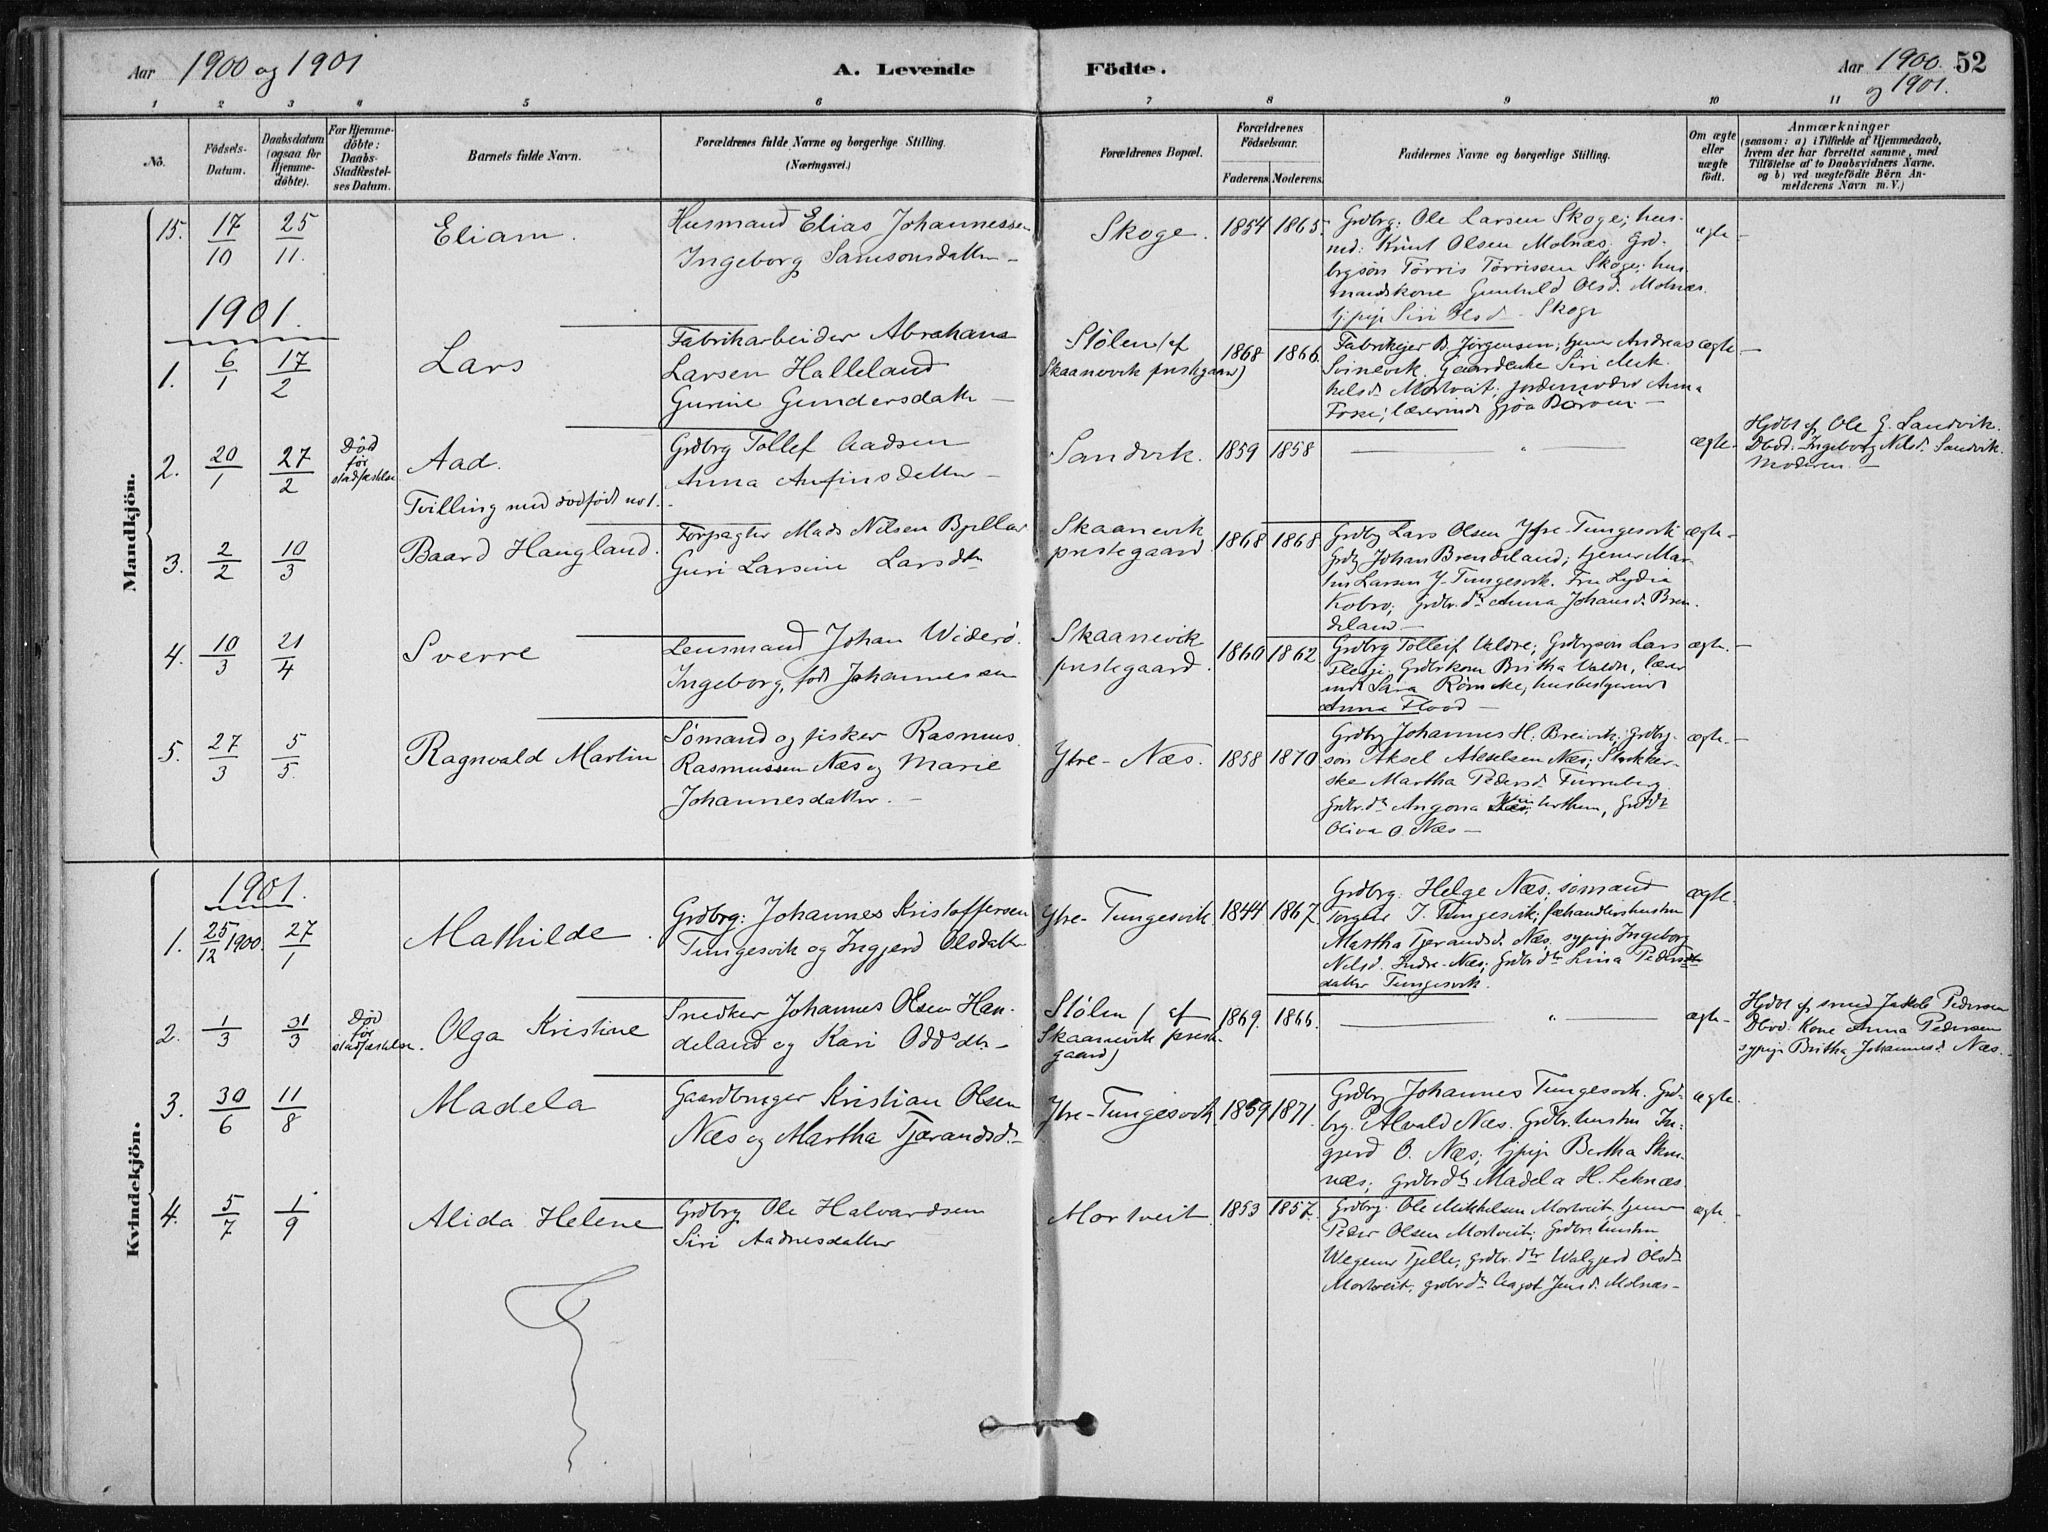 Aar 1900 og 1901
A. Levende Födte.
Aar 1900 og 1901.
52
1 2 3 4 5 6 7 8 9 10 11
No.
Födsels-Datum.
Daabsdatum (ogsaa for Hjemmedöbte).
For Hjemmedöbte: Daabs-Stadfæstelses Datum.
Barnets fulde Navn.
Forældrenes fulde Navne og borgerlige Stilling. (Næringsvei.)
Forældrenes Bopæl.
Forældrenes Födselsaar.
Faderens. Moderens.
Faddernes Navne og borgerlige Stilling.
Om ægte eller uægte födt.
Anmærkninger
(saasom: a) i Tilfælde af Hjemmedaab, hvem der har forrettet samme, med Tilföielse af to Daabsvidners Navne. og b) ved uægtefödte Börn Anmelderens Navn m. V.)
Mandkjön.
15. 17/10 25/11. Eliam.
Husmand Elias Johannessen
Ingeborg Samsonsdatter –
Skoge. 1854 1865.
Grdbrg: Ole Larsen Skoge; hus-
md: Knut Olsen Molnæs. Grd-
brgsøn Tørris Tørrissen Skoge; hus
mandskone Gunhild Olsd. Molnæs.
tjpige Siri Olsd. Skoge
ægte –
1901.
1. 6/1 17/2 Lars
Fabrikarbeider Abraham
Larsen Halleland
Gurine Gundersdatr –
Stølen (af
Skaanevik prestegaard)
1868 1866.
Fabrikejer B. Jørgensen; tjener Andreas
Svinevik. Gaardenke Siri Mik
kelsd. Mortveit; jordemoder Anna
Foske; lærerinde Gjøa –
ægte –
2. 20/1 27/2 Død før stadfæstelse
Aad.
Tvilling med dødfødt no 1.
Grdbrg Tollef Aadsen
Anna Anfinsdatter –
Sandvik. 1859 1858
— " —
ægte –
Hjdbt af Ole G. Sandvik.
Dbvd. Ingeborg Nilsd. Sandvik.
Moderen. –
3. 2/2 10/3 Baard Haugland.
Forpagter Mads Nilsen Bjelland
Guri Larsine Larsdtr
Skaanevik
prestegaard
1868 1868
Grdbg Lars Olsen Ytre-Tungesvik
Grdbg Johan Brendeland; tjener Mar-
tin Larsen Y-Tungesvik. Fru Lydia
Kobro; grdbr.dtr Anna Johansd. Bren-
deland –
ægte –
4. 10/3 21/4 Sverre
Lensmand Johan Widerø.
Ingeborg, født Johannesen
Skaanevik
prestegaard.
1860 1862
Grdbrg Tolleif Valdre; Grdbrgsøn Lars
Grdbrkone Britha Valdre, lærer
inde Sara husbestyrerinde
Anna Flood –
ægte –
5. 27/3 5/5. Ragnvald Martin
Sømand og fisker Rasmus
Rasmussen Næs og Marie
Johannesdatter. –
Ytre-Næs. 1858 1870
Grdbrg Johannes H. Breivik; Grdbrg-
søn Aksel Akselsen Næs;
Martha Pedersd. Furreberg.
Grdbr.dtr Angona Grdbdtr
Oliva O. Næs –
ægte –
Kvindekjön.
1901.
1. 25/12 1900. 27/1 Mathilde.
Grdbrg: Johannes Kristoffersen
Tungesvik og Ingjerd Olsdatter
Ytre-Tungesvik. 1844 1867.
Grdbrg. Helge Næs; sømand
Torger I. Tungesvik; fæhandlershustru
Martha Tjerandsd. Næs, sypige Ingeborg
Nilsd. Indre-Næs; Grdbr.dtr Lina Peders-
datter Tungesvik.
ægte.
2. 1/3 31/3 Død før stadfæstelse.
Olga Kristine
Snedker Johannes Olsen Han-
deland og Kari Oddsdtr –
Stølen (af
Skaanevik preste-
gaard)
1869. 1866.
— " —
ægte –
Hjdbt af smed Jakob Pedersen
Dbvd. Kone Anna Pedersen
sypige Britha Johannesd. Næs. –
3. 30/6 11/8 Madela
Gaardbruger Kristian Olsen
Næs og Martha Tjerandsd. –
Ytre-Tungesvik. 1859 1871.
Grdbrg Johannes Tungesvik. Grd-
brg. P. Alvald Næs. Grdbr.hustru In-
gjerd O. Næs; tjpige Bertha Skem-
næs; grdbrdtr Madela H. Leknæs.
ægte –
4. 5/7 1/9 Alida Helene
Grdbrg Ole Halvardsen
Siri Aadnesdatter
Mortveit. 1853 1857.
Grdbrg. Ole Mikkelsen Mortveit. tjener
Peder Olsen Mortveit; Grdbr.hustru
Tjelle, grdbr.dtr Walgjerd Olsdtr
Mortveit. grdbrdtr Aagot Jensd. Molnæs –
ægte. –